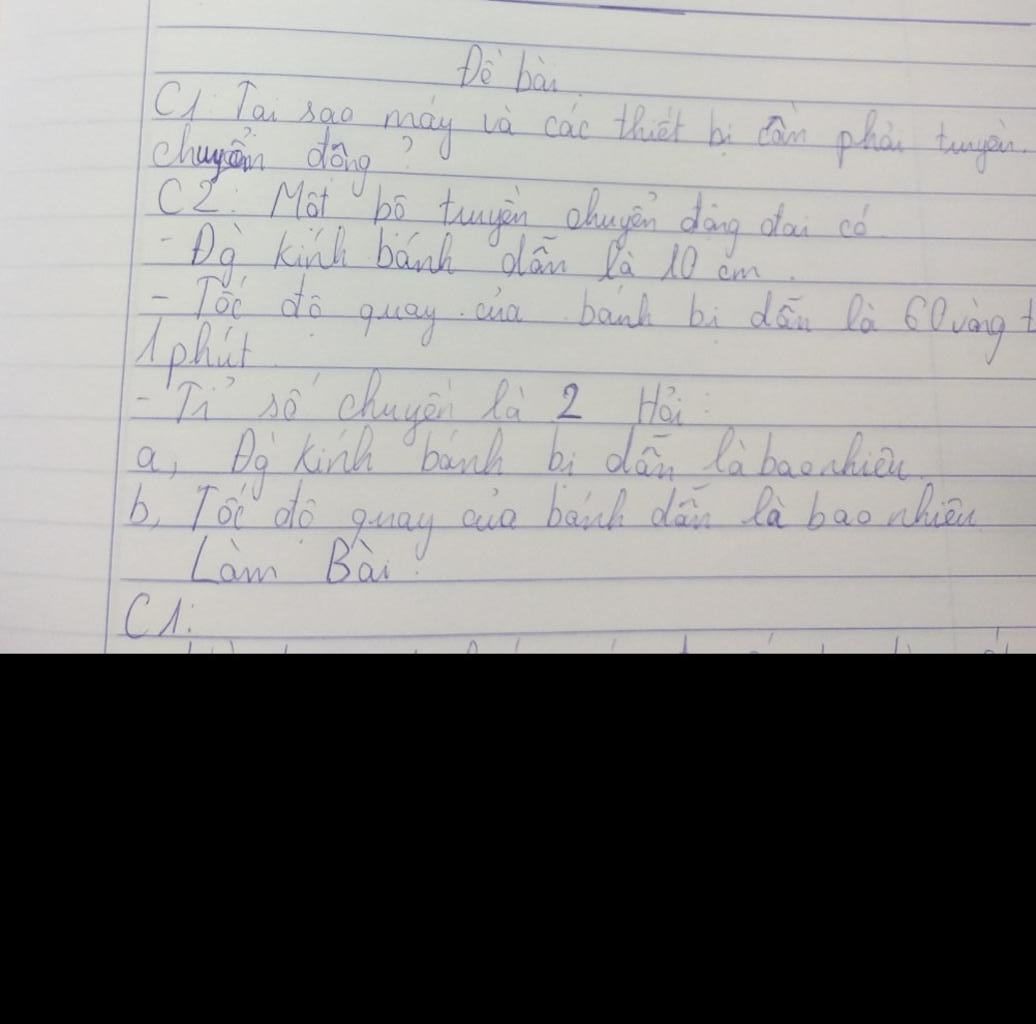 Đề bài
C1: Tại sao máy và các thiết bị cần phải truyền
chuyển động?
C2: Một bộ truyền chuyển động đai có
- Đg kính bánh dẫn là 10 cm.
- Tốc độ quay của bánh bị dẫn là 60 vòng t
1 phút
- Tỉ số chuyền là 2 Hỏi:
a, Đg kính bánh bị dẫn là bao nhiêu
b, Tốc độ quay của bánh dẫn là bao nhiêu
Làm Bài:
C1: